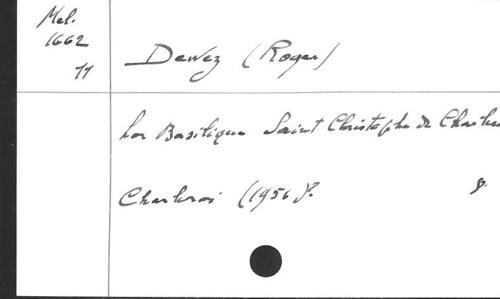 Mel.
1662
11
Dewez (Roger)
La Basilique Saint Christophe de Charler
Charleroi (1956)8.
8.